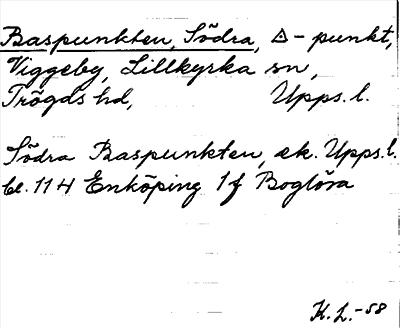 Baspunkten, Södra, △-punkt,
Viggeby, Lillkyrka sn,
Trögds hd, Upps. l.
Södra Baspunkten, ek. Upps. l.
bl. 114 Enköping 1f Boglösa
K. L. -58